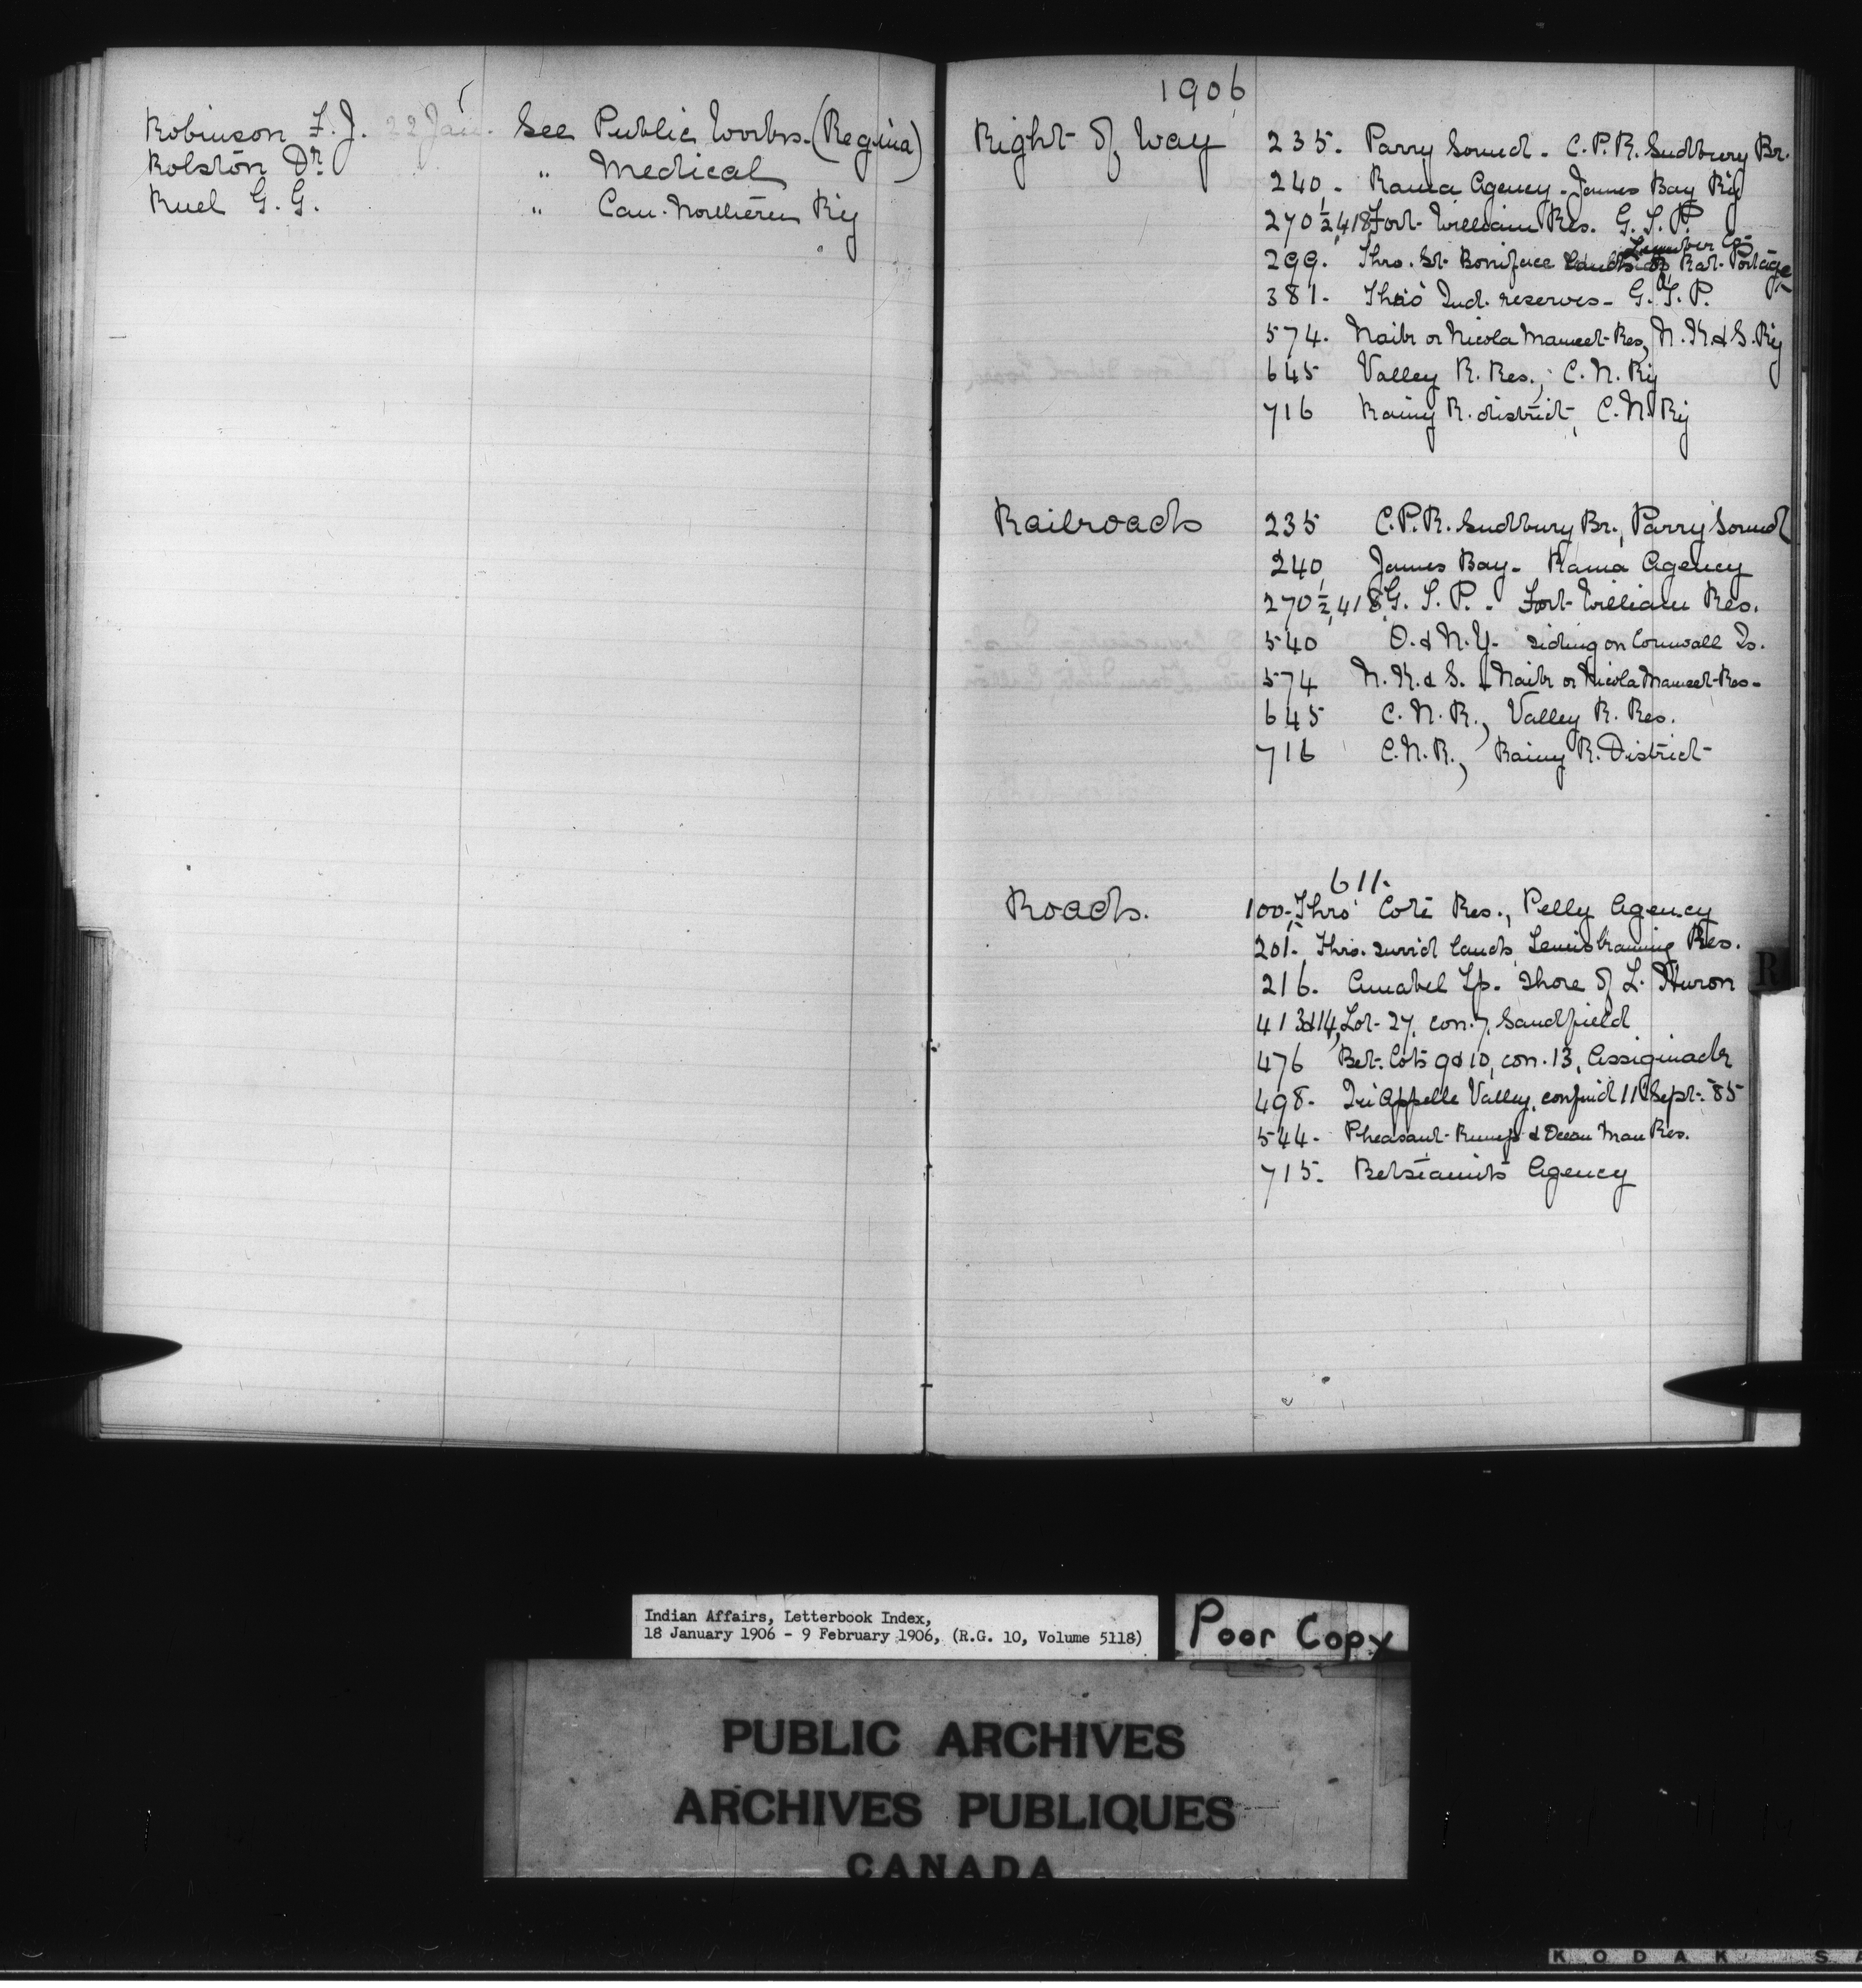 Robinson F. J. 22 Jan. See Public Works. (Regina)
Rolston Dr " Medical
Ruel G. G. " Can. Northern Ry
1906
Right of Way
235. Parry Sound. C.P.R. Sudbury Br.
240. Rama Agency. James Bay Ry
270½, 418 Fort William Res. G. T. P.
Lumber Co.
299. Thro. St. Boniface Rat Portage
381. Thro' Ind. reserves. G. T. P.
574. Naik or Nicola Mameet Res, N. K & S. Ry
645 Valley R. Res., C. N. Ry
716 Rainy R. district, C. N. Ry
Railroads
235 C.P.R. Sudbury Br., Parry Sound
240, James Bay. Rama Agency
270½, 418, G. T. P. . Fort William Res.
540 O. & N. Y. siding on Cornwall Is.
574 N. K. & S. Naik or Nicola Mameet Res.
645 C. N. R., Valley R. Res.
716 C. N. R., Rainy R. District
Roads.
611.
100. Thro' Coté Res., Pelly Agency
201. Thro. surr'd lands, Temiskaming Res.
216. Amabel Tp. Shore of L. Huron
413 & 14, Lot 27, con. 7, Sandfield
476 Bet. Lots 9 & 10, con. 13, Assiginack
498. Qu'Appelle Valley, confirm'd 11 Sept. '85
544. Pheasant Rump & Ocean Man Res.
715. Betsiamits Agency
R
Indian Affairs, Letterbook Index,
18 January 1906 - 9 February 1906, (R.G. 10, Volume 5118)
Poor Copy
PUBLIC ARCHIVES
ARCHIVES PUBLIQUES
CANADA
KODAK SA